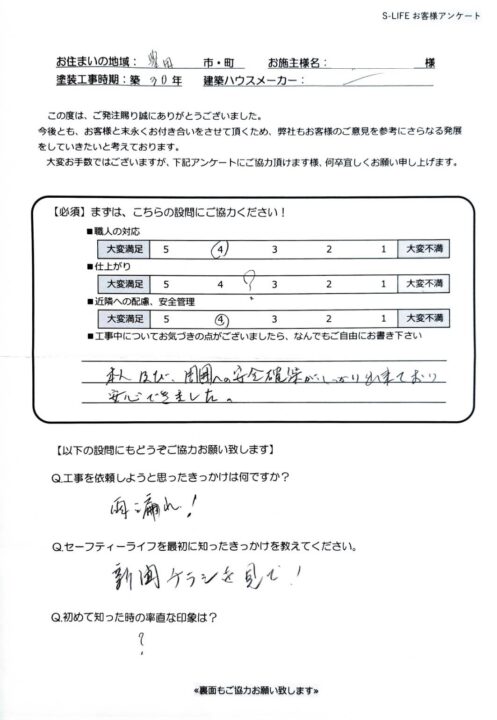 S-LIFE お客様アンケート
お住まいの地域： 豊田 市・町 お施主様名： 様
塗装工事時期：築 30 年 建築ハウスメーカー：
この度は、ご発注賜り誠にありがとうございました。
今後とも、お客様と末永くお付き合いをさせて頂くため、弊社もお客様のご意見を参考にさらなる発展
をしていきたいと考えております。
大変お手数ではございますが、下記アンケートにご協力頂けます様、何卒宜しくお願い申し上げます。
【必須】まずは、こちらの設問にご協力ください！
■職人の対応
大変満足 5 4 3 2 1 大変不満
■仕上がり
大変満足 5 4 ? 3 2 1 大変不満
■近隣への配慮、安全管理
大変満足 5 4 3 2 1 大変不満
■工事中についてお気づきの点がございましたら、なんでもご自由にお書き下さい
本人及び、周囲への安全確保がしっかり出来ており
安心できました。
【以下の設問にもどうぞご協力お願い致します】
Q.工事を依頼しようと思ったきっかけは何ですか？
雨漏れ！
Q.セーフティーライフを最初に知ったきっかけを教えてください。
新聞チラシを見て！
Q.初めて知った時の率直な印象は？
？
≪裏面もご協力お願い致します≫